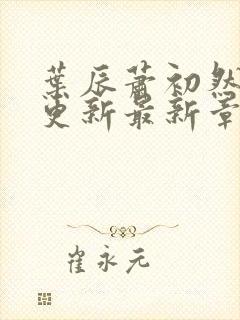 葉辰蕭初然
更新最新章
崔永元